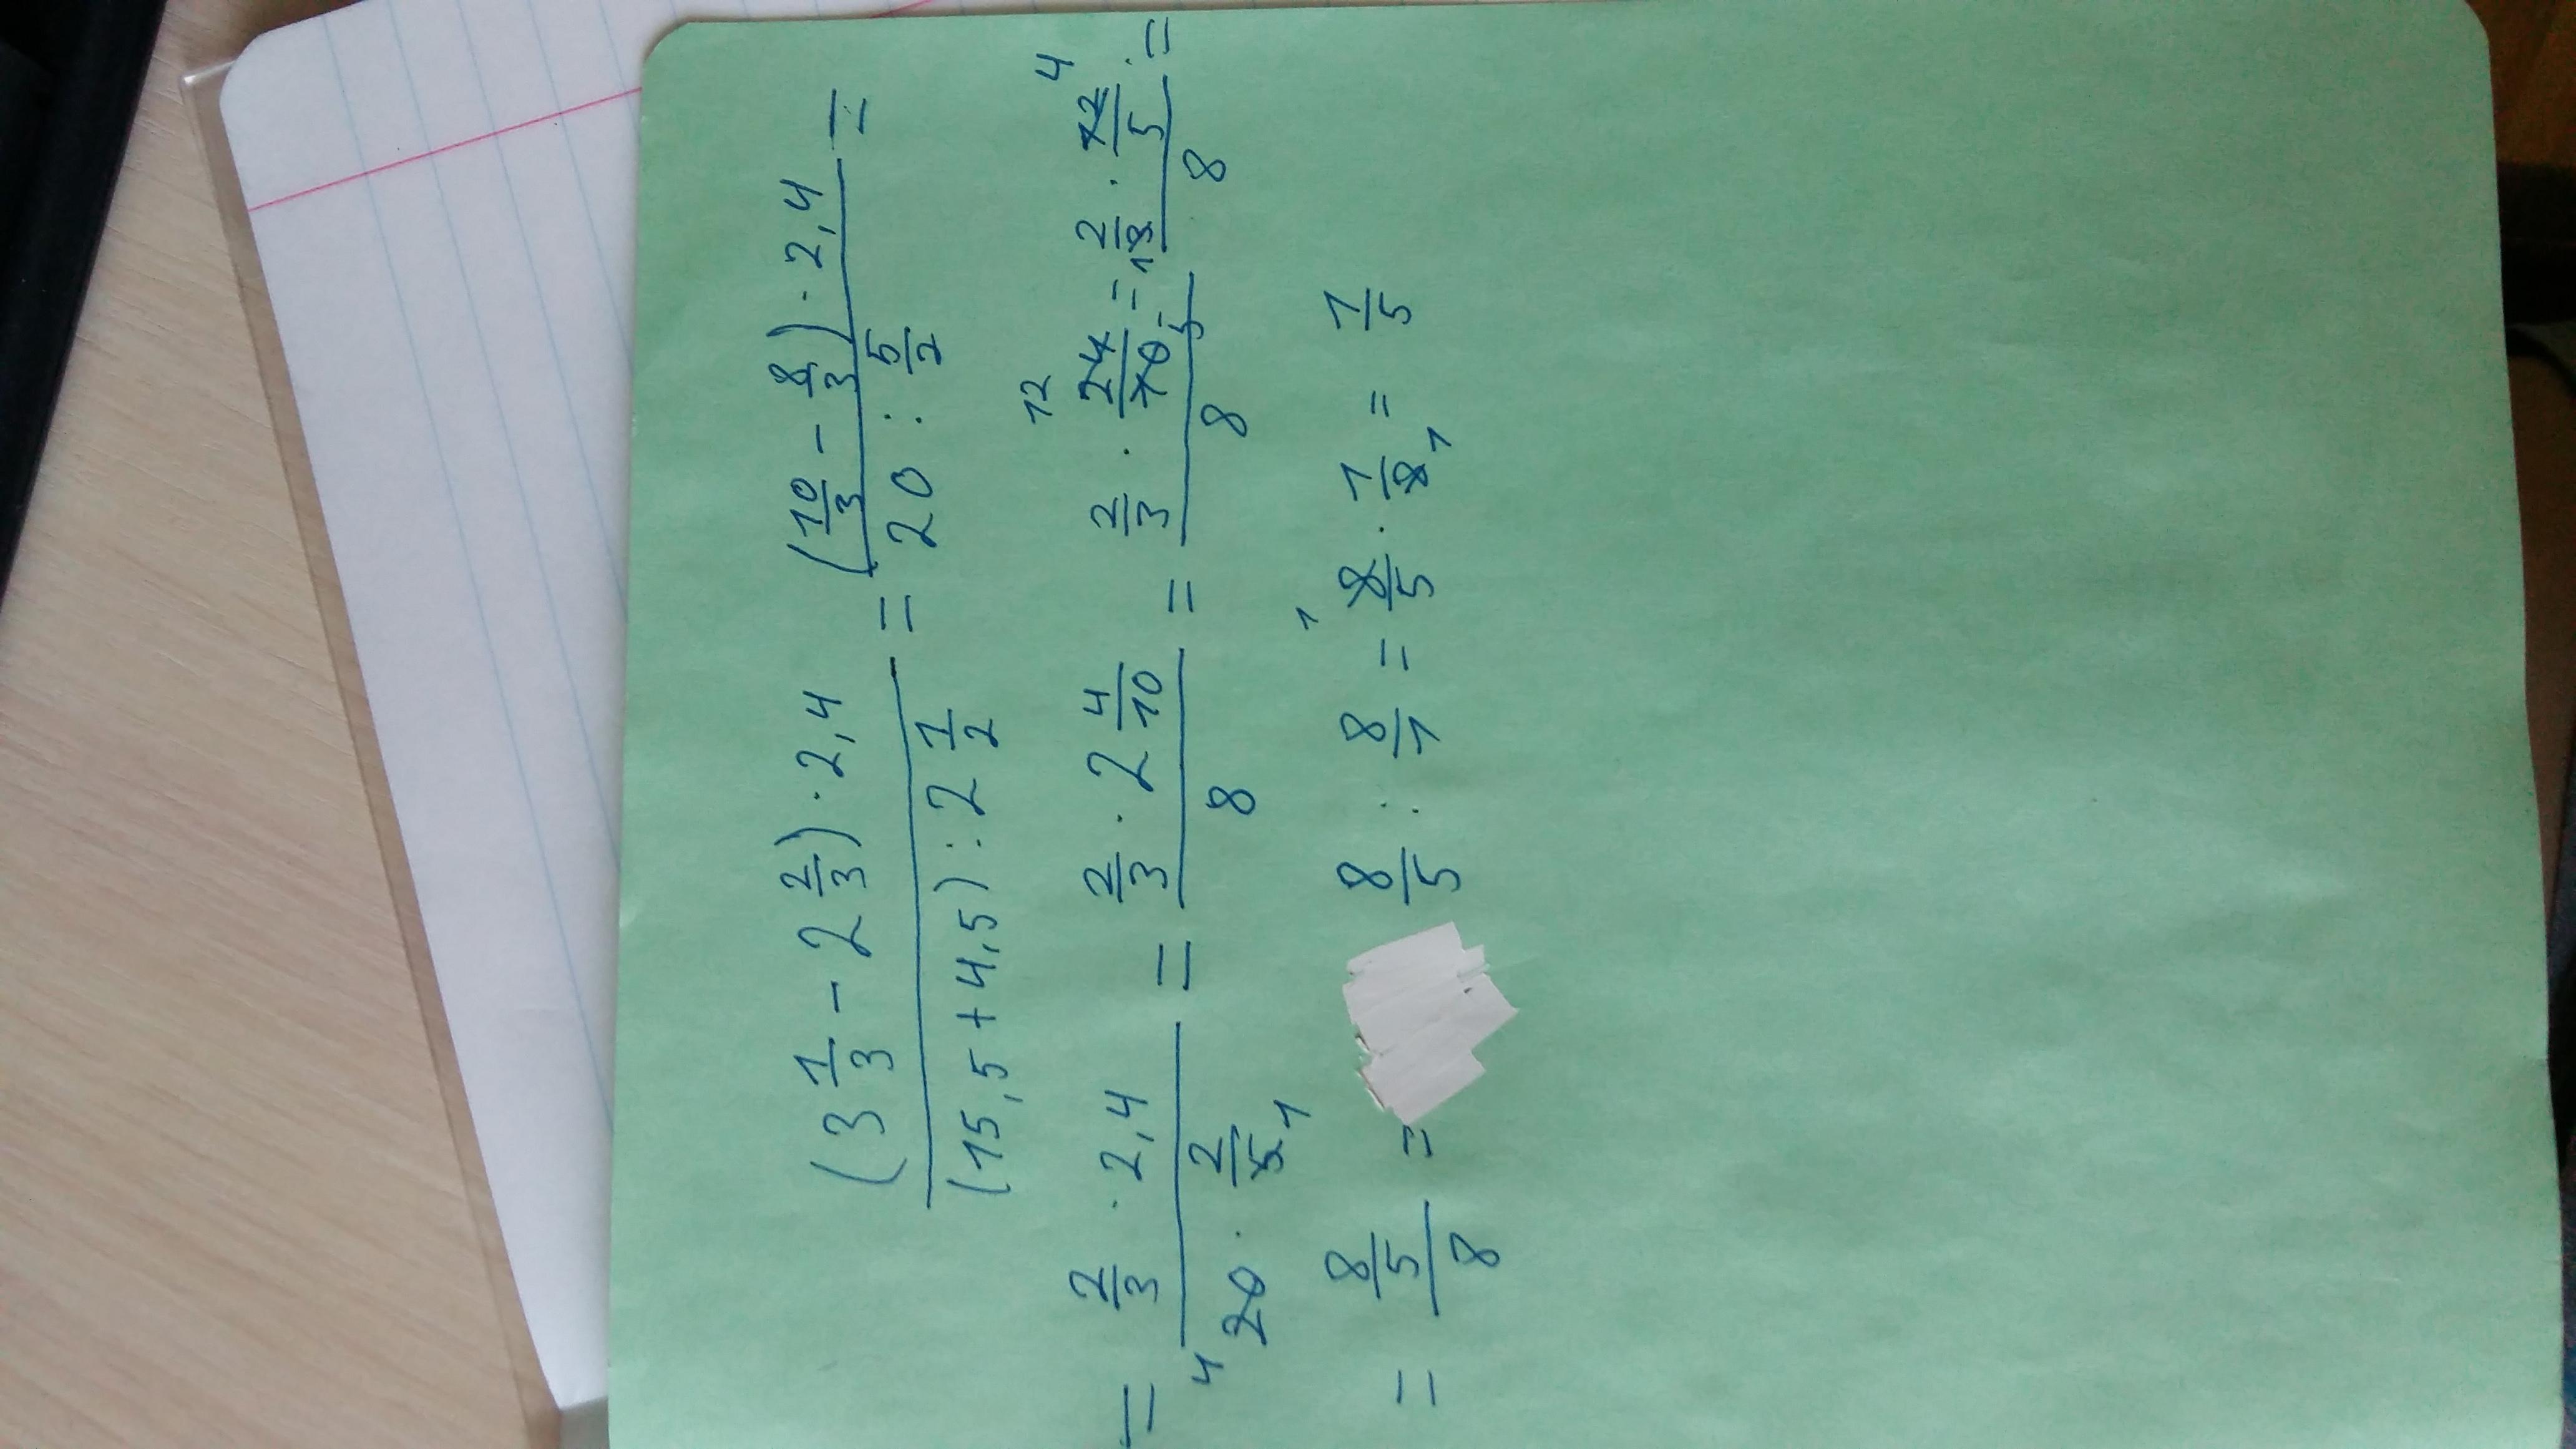 (3 1/3 - 2 2/3) · 2,4 / (15,5 + 4,5) : 2 1/2 = (10/3 - 8/3) · 2,4 / 20 : 5/2 =
= 2/3 · 2,4 / 4 20 · 2/5 1 = 2/3 · 2 4/10 / 8 = 2/3 · 12 24/10 5 / 8 = 2/3 1 · 4 12/5 / 8 =
= 8/5 / 8 = 8/5 : 8/1 = 1 8/5 · 1/8 1 = 1/5